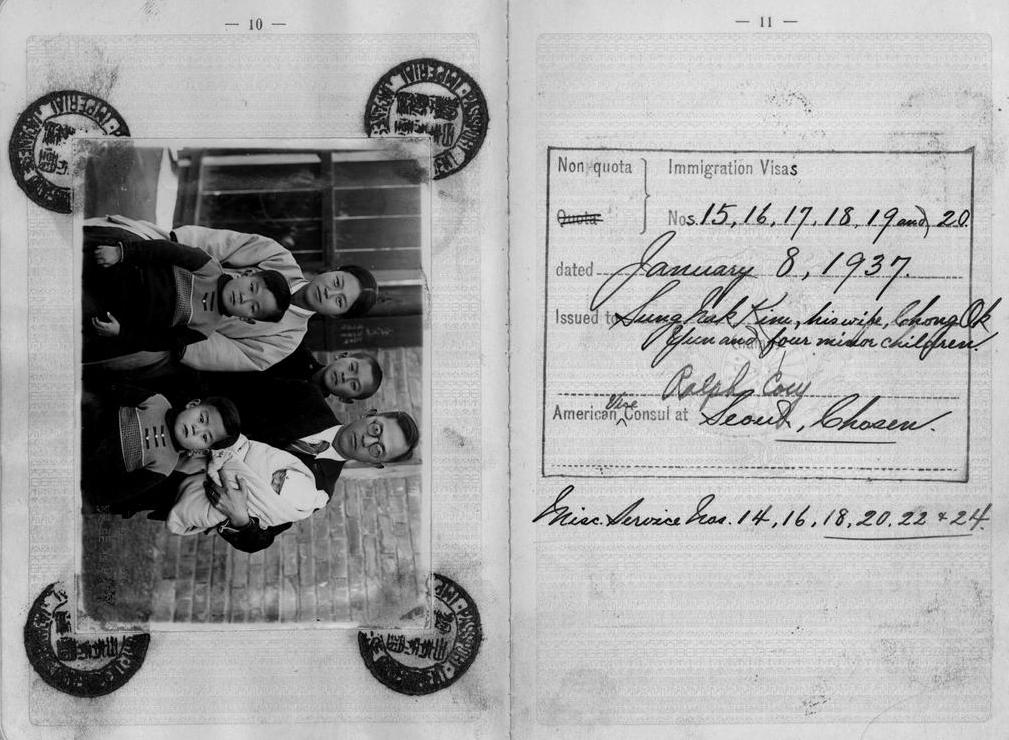 — 10 —
IMPERIAL
PASSPORT
— 11 —
Non quota } Immigration Visas
Quota Nos. 15, 16, 17, 18, 19 and 20.
dated January 8, 1937.
Issued to Sung Nak Kim, his wife, Chong Ok
Yun and four minor children.
Ralph Cory
American Vice Consul at Seoul, Chosen.
Misc. Service Nos. 14, 16, 18, 20, 22 & 24.